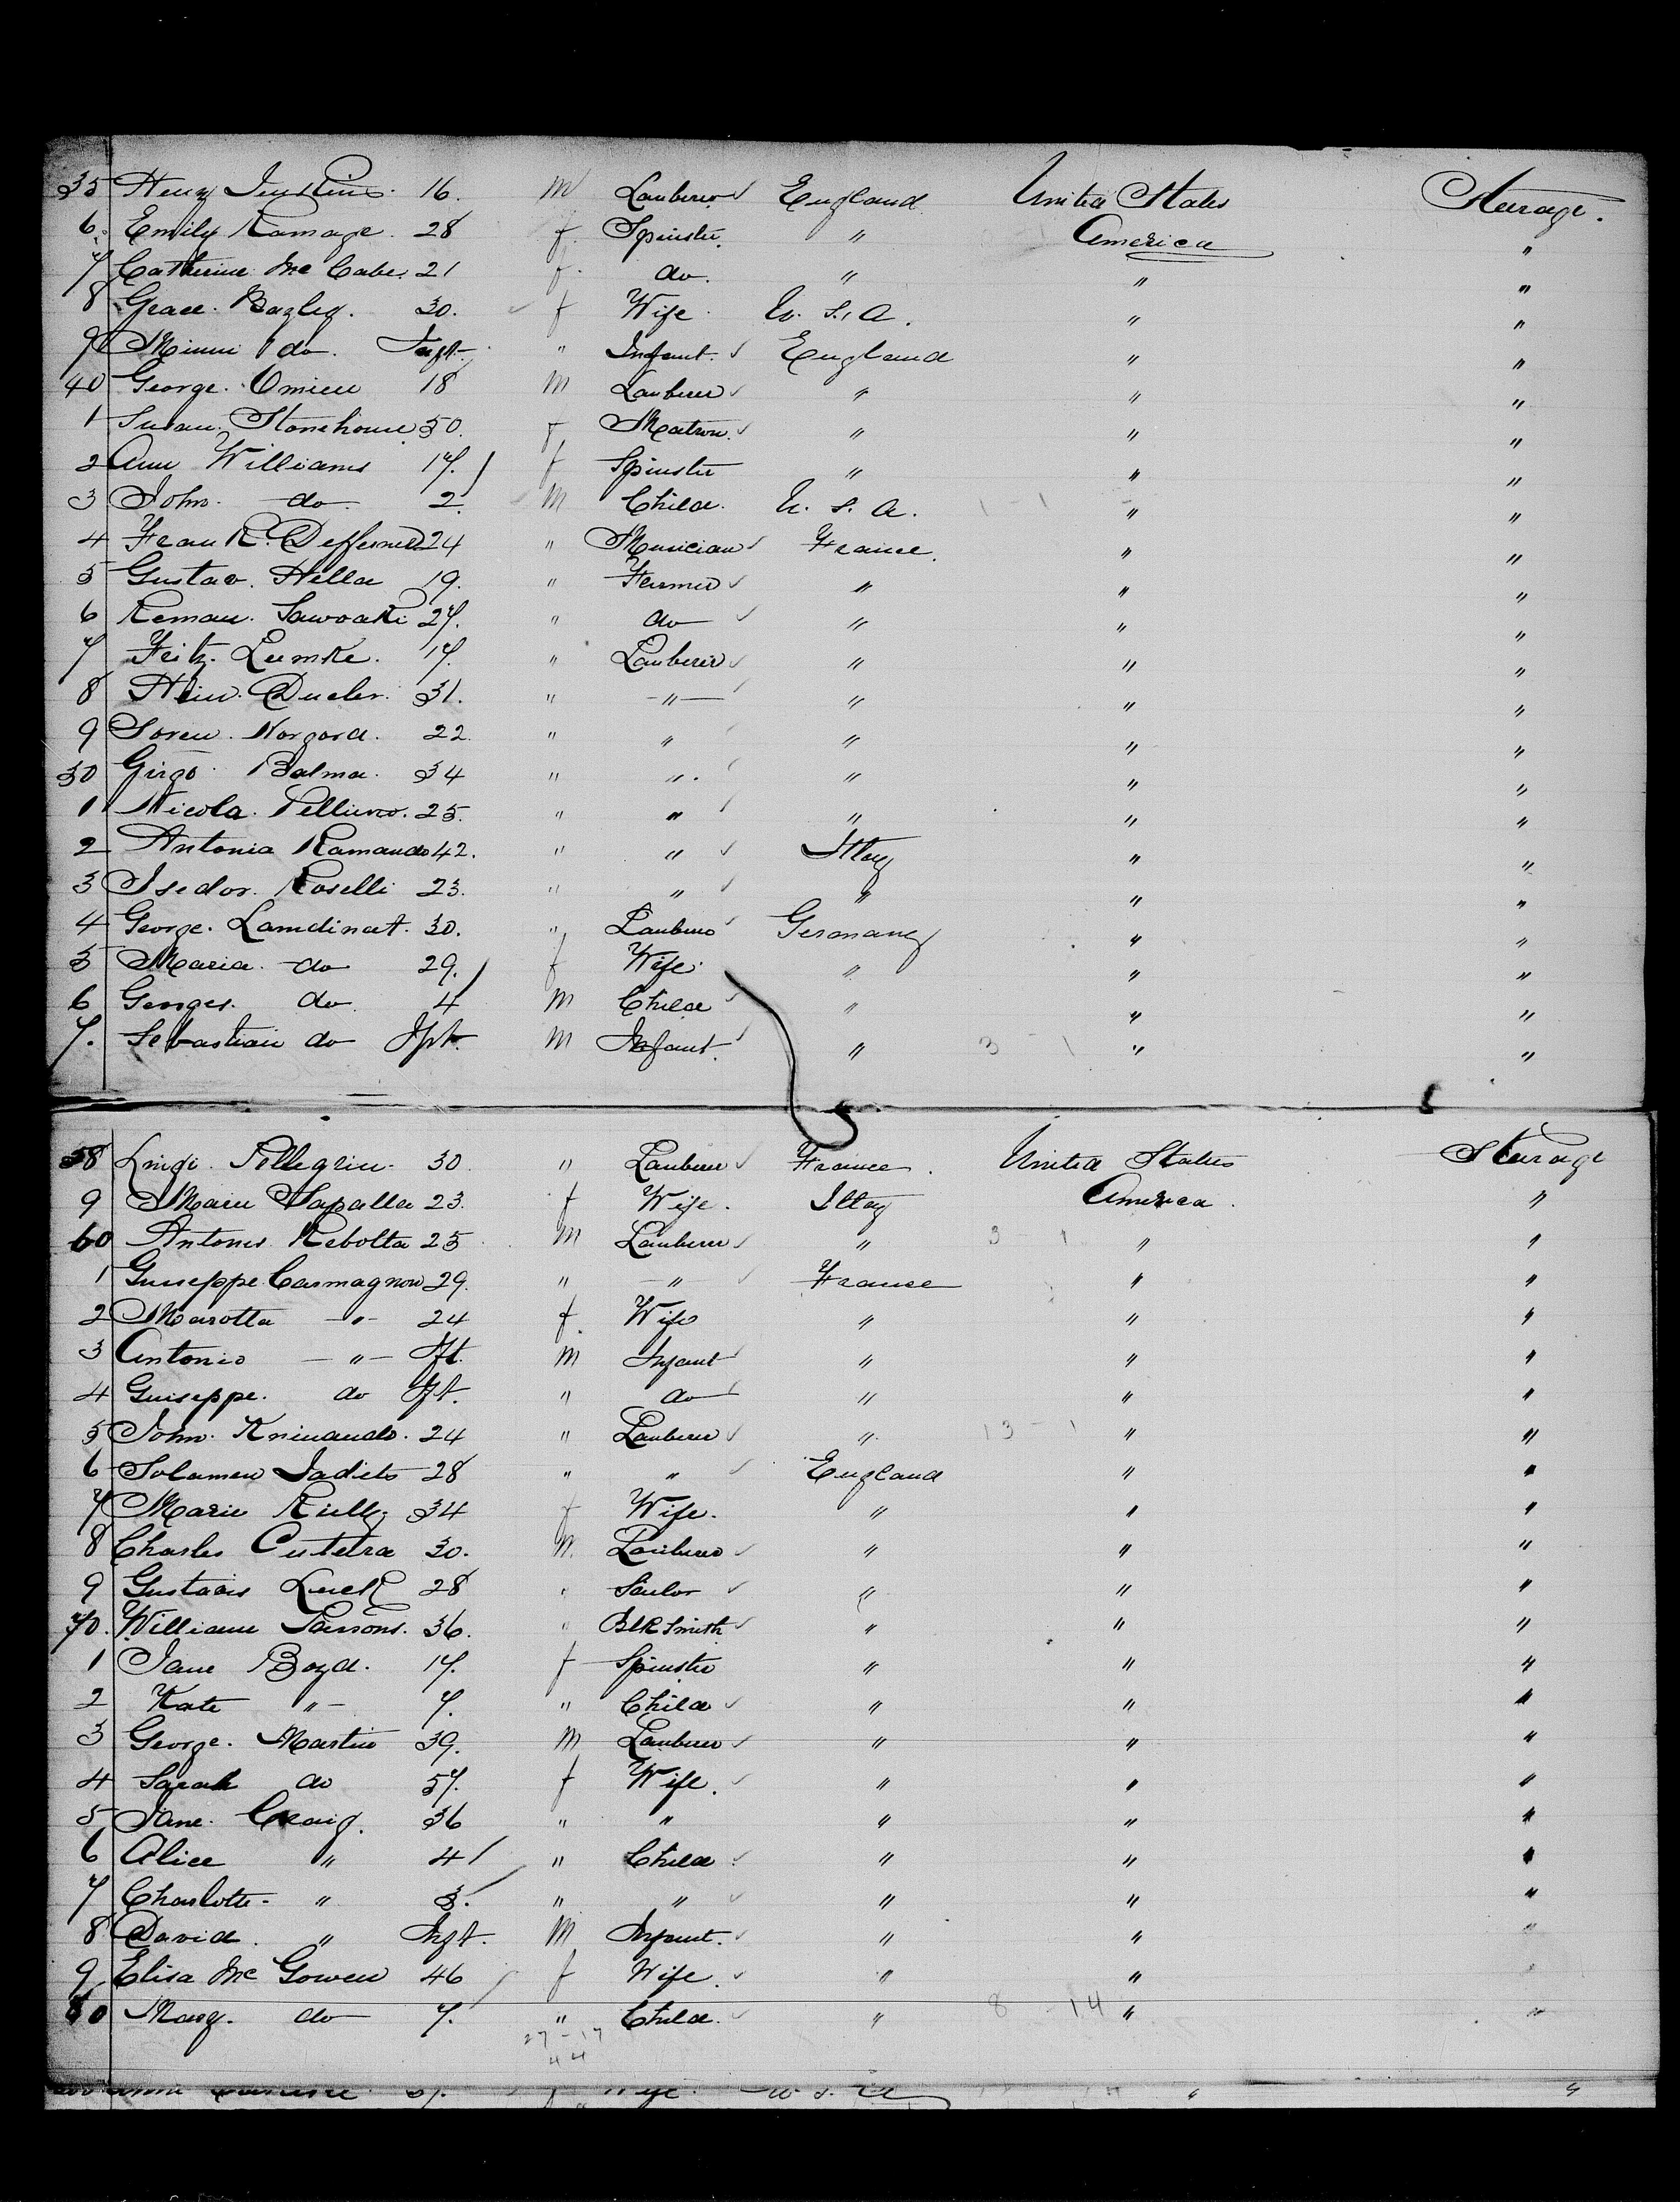 35 Henry Jenkins. 16. m Lauberer England United States Steerage.
6. Emily Ramage. 28 f. Spinster. " America "
7 Catherine Mc Cabe. 21 f. do. " " "
8 Grace. Bagley. 30. f Wife. U. S. A. " "
9 Minni do. Inft. " Infant. England " "
40 George. Omieu 18 m Lauberer " " "
1 Susan. Stonehouse 50. f. Matron. " " "
2 Ann Williams 17. f Spinster " " "
3 John. do. 2. m Child. U. S. A. 1 - 1 " "
4 Frank. 24 " Musician France. " "
5 Gustav. Hella 19. " Farmer " " "
6 Reman. Sawoaki 27. " do " " "
7 Fritz. Lemke. 17. " Lauberer " " "
8 Hein. 31. " " " " "
9 Soren. Norgord. 22. " " " " "
50 Girgo. Balma. 34 " " " " "
1 Nicola. 25. " " " " "
2 Antonia Ramando 42. " " Ittay " "
3 Isedor. Roselli 23. " " " " "
4 George. Lamdinat. 30. " Lauberer Germany " "
5 Maria. do 29. f Wife. " " "
6 Georges. do. 4 m Child " " "
7. Sebastian do Ift. m Infant. " 3 1 " "
58 Luigi. Pellegrin. 30. " Lauberer France. United States Steerage
9 Marie Sapalla 23. f Wife. Ittay America. "
60 Antonis Rebolta 25 m Lauberer " 3 1 " "
1 Guiseppe Carmagnou 29. " " France " "
2 Marotta " 24 f. Wife " " "
3 Antonio " Ift. m Infant " " "
4 Guiseppe. do Ift. " do " " "
5 John. 24 " Lauberer " 13 - 1 " "
6 Solamen 28 " " England " "
7 Marie Rielly 34 f Wife. " " "
8 Charles Cutetra 30. m. Lauberer " " "
9 Gustavis Luck 28 " Sailor " " "
70. William Parsons. 36. " Blk Smith " " "
1 Jane Boyd. 17. f Spinster " " "
2 Kate " 7. " Child " " "
3 George. Martin 39. m Lauberer " " "
4 Sarah do 57. f Wife. " " "
5 Jane. Craig. 36 " " " " "
6 Alice " 4 " Child " " "
7 Charlotte " 3. " " " " "
8 David. " Inft. m Infant. " " "
9 Elisa Mc Gowen 46 f Wife. " " "
80 Marg. do 7. " Child. " 8 - 14 " "
27 - 17
44
Wife. U. S. A " "